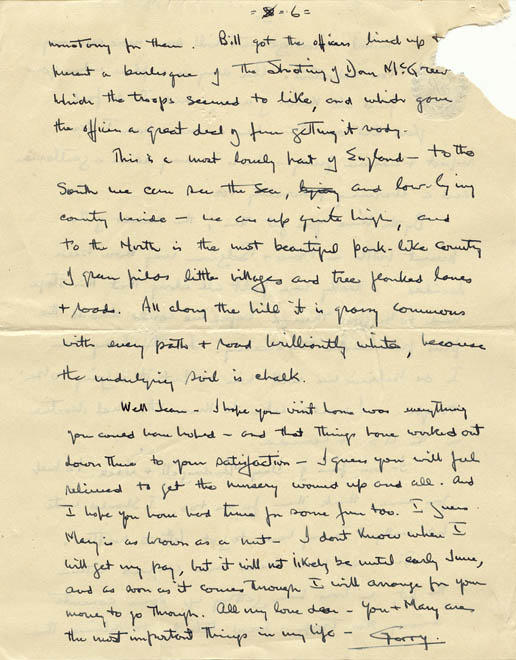 = 6 =
monotony for them. Bill got the officers lined up to
present a burlesque of The Shooting of Dan McGrew
which the troops seemed to like, and which gave
the officers a great deal of fun getting it ready.
This is a most lovely part of England - to the
South we can see the Sea, and low-lying
country beside - we are up quite high, and
to the North is the most beautiful park-like country
of green fields little villages and tree flanked lanes
+ roads. All along the hill it is grassy commons
with every path + road brilliantly white, because
the underlying soil is chalk.
Well Jean - I hope your visit home was everything
you could have hoped - and that things have worked out
down there to your satisfaction - I guess you will feel
relieved to get the nursery wound up and all. And
I hope you have had time for some fun too. I guess
Mary is as brown as a nut - I don't know when I
will get my pay, but it will not likely be until early June,
and as soon as it comes through I will arrange for your
money to go through. All my love dear - You + Mary are
the most important things in my life -